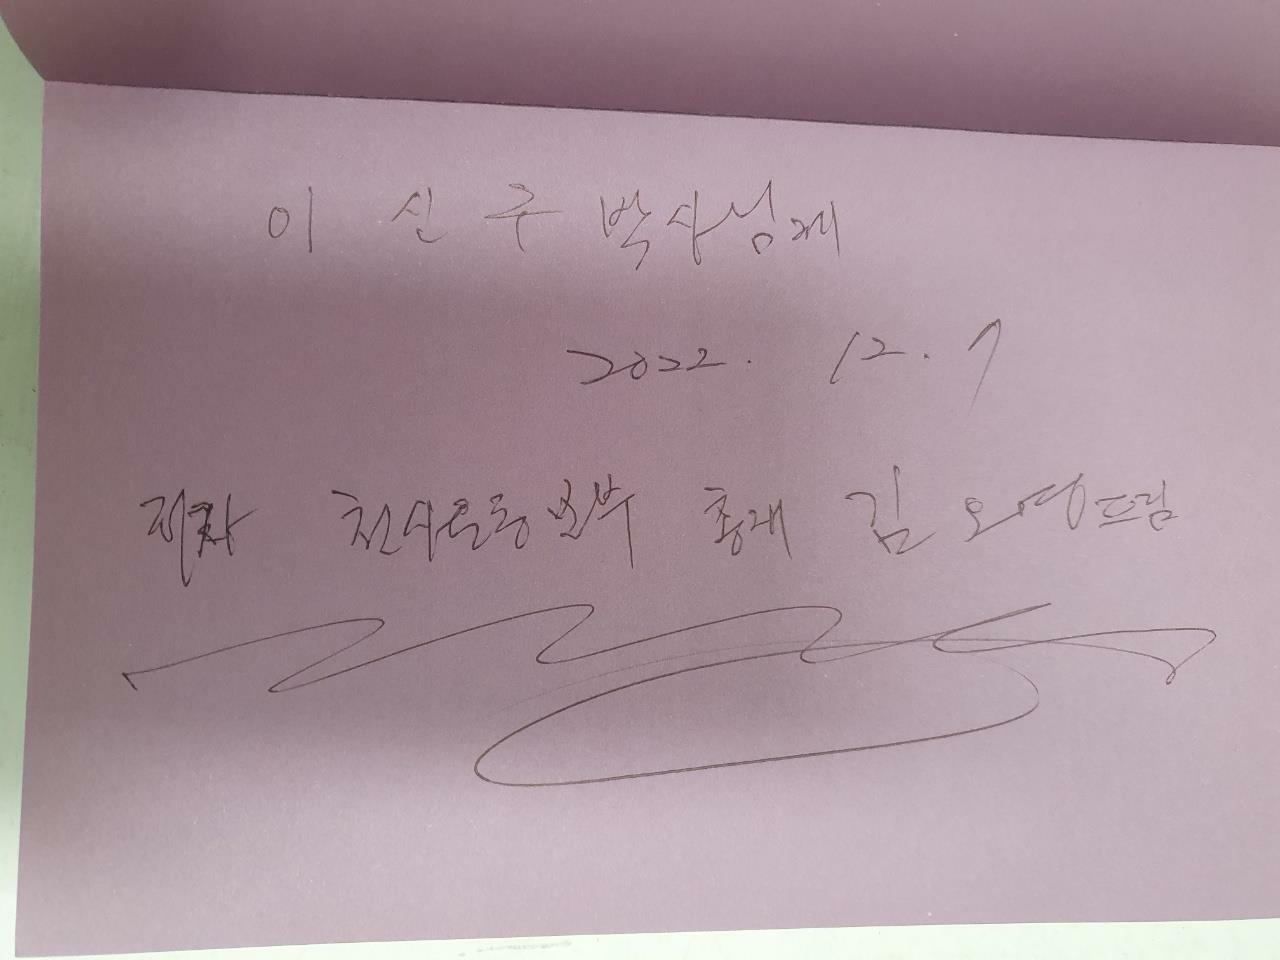 이 신구 박사님께
2022. 12. 7
저자 천사운동본부 총재 김 오 드림